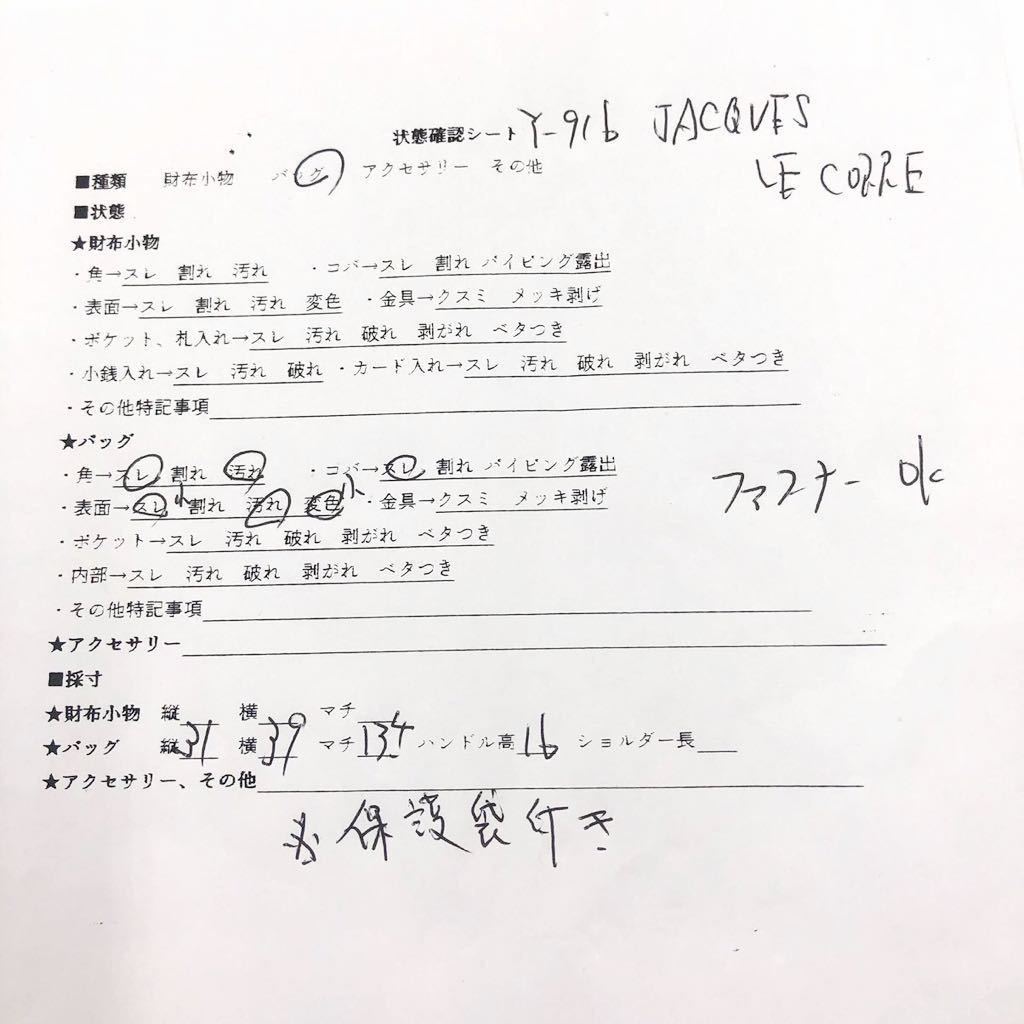 状態確認シート Y-916 JACQUES
LE CORRE
■種類 財布小物 バッグ アクセサリー その他
■状態
★財布小物
・角→スレ 割れ 汚れ ・コバ→スレ 割れ パイピング露出
・表面→スレ 割れ 汚れ 変色 ・金具→クスミ メッキ剥げ
・ポケット、札入れ→スレ 汚れ 破れ 剥がれ ベタつき
・小銭入れ→スレ 汚れ 破れ ・カード入れ→スレ 汚れ 破れ 剥がれ ベタつき
・その他特記事項
★バッグ
・角→スレ 割れ 汚れ ・コバ→スレ 割れ パイピング露出
ファスナー OK
・表面→スレ 小 割れ 汚れ 変色 小 ・金具→クスミ メッキ剥げ
・ポケット→スレ 汚れ 破れ 剥がれ ベタつき
・内部→スレ 汚れ 破れ 剥がれ ベタつき
・その他特記事項
★アクセサリー
■採寸
★財布小物 縦 横 マチ
★バッグ 縦31 横39 マチ13.4 ハンドル高16 ショルダー長
★アクセサリー、その他
※保護袋付き